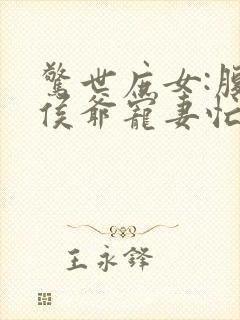 驚世庶女:腹
侯爺寵妻忙
王永鋒